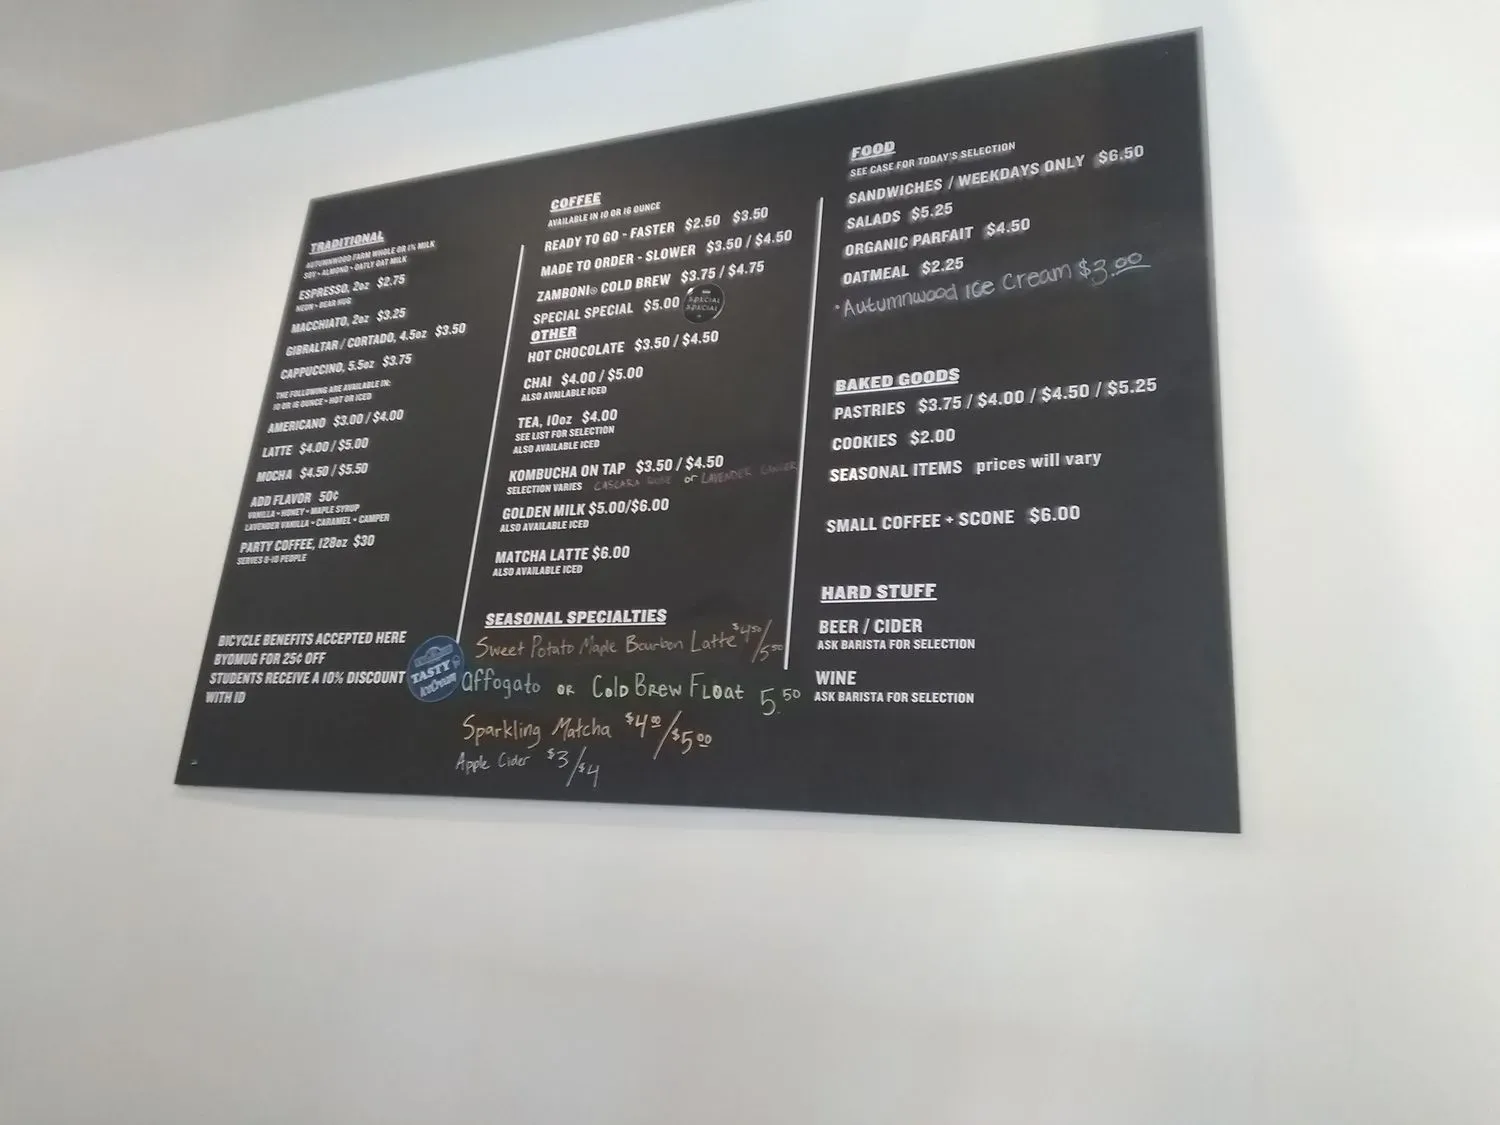 TRADITIONAL
AUTUMNWOOD FARM WHOLE OR 1% MILK
SOY - ALMOND - OATLY OAT MILK
ESPRESSO, 2oz $2.75
NEON - BEAR HUG
MACCHIATO, 2oz $3.25
GIBRALTAR / CORTADO, 4.5oz $3.50
CAPPUCCINO, 5.5oz $3.75
THE FOLLOWING ARE AVAILABLE IN:
10 OR 16 OUNCE - HOT OR ICED
AMERICANO $3.00 / $4.00
LATTE $4.00 / $5.00
MOCHA $4.50 / $5.50
ADD FLAVOR 50¢
VANILLA - HONEY - MAPLE SYRUP
LAVENDER VANILLA - CARAMEL - CAMPER
PARTY COFFEE, 128oz $30
SERVES 8-10 PEOPLE
BICYCLE BENEFITS ACCEPTED HERE
BYOMUG FOR 25¢ OFF
STUDENTS RECEIVE A 10% DISCOUNT
WITH ID
COFFEE
AVAILABLE IN 10 OR 16 OUNCE
READY TO GO - FASTER $2.50 $3.50
MADE TO ORDER - SLOWER $3.50 / $4.50
ZAMBONI® COLD BREW $3.75 / $4.75
SPECIAL SPECIAL $5.00
SPECIAL
SPECIAL
OTHER
HOT CHOCOLATE $3.50 / $4.50
CHAI $4.00 / $5.00
ALSO AVAILABLE ICED
TEA, 10oz $4.00
SEE LIST FOR SELECTION
ALSO AVAILABLE ICED
KOMBUCHA ON TAP $3.50 / $4.50
SELECTION VARIES CASCARA ROSE or LAVENDER GINGER
GOLDEN MILK $5.00/$6.00
ALSO AVAILABLE ICED
MATCHA LATTE $6.00
ALSO AVAILABLE ICED
SEASONAL SPECIALTIES
Sweet Potato Maple Bourbon Latte $4.50/5.50
TASTY
Ice Cream
affogato OR Cold Brew Float 5.50
Sparkling Matcha $4.00/$5.00
Apple Cider $3/$4
FOOD
SEE CASE FOR TODAY'S SELECTION
SANDWICHES / WEEKDAYS ONLY $6.50
SALADS $5.25
ORGANIC PARFAIT $4.50
OATMEAL $2.25
• Autumnwood Ice Cream $3.00
BAKED GOODS
PASTRIES $3.75 / $4.00 / $4.50 / $5.25
COOKIES $2.00
SEASONAL ITEMS prices will vary
SMALL COFFEE + SCONE $6.00
HARD STUFF
BEER / CIDER
ASK BARISTA FOR SELECTION
WINE
ASK BARISTA FOR SELECTION